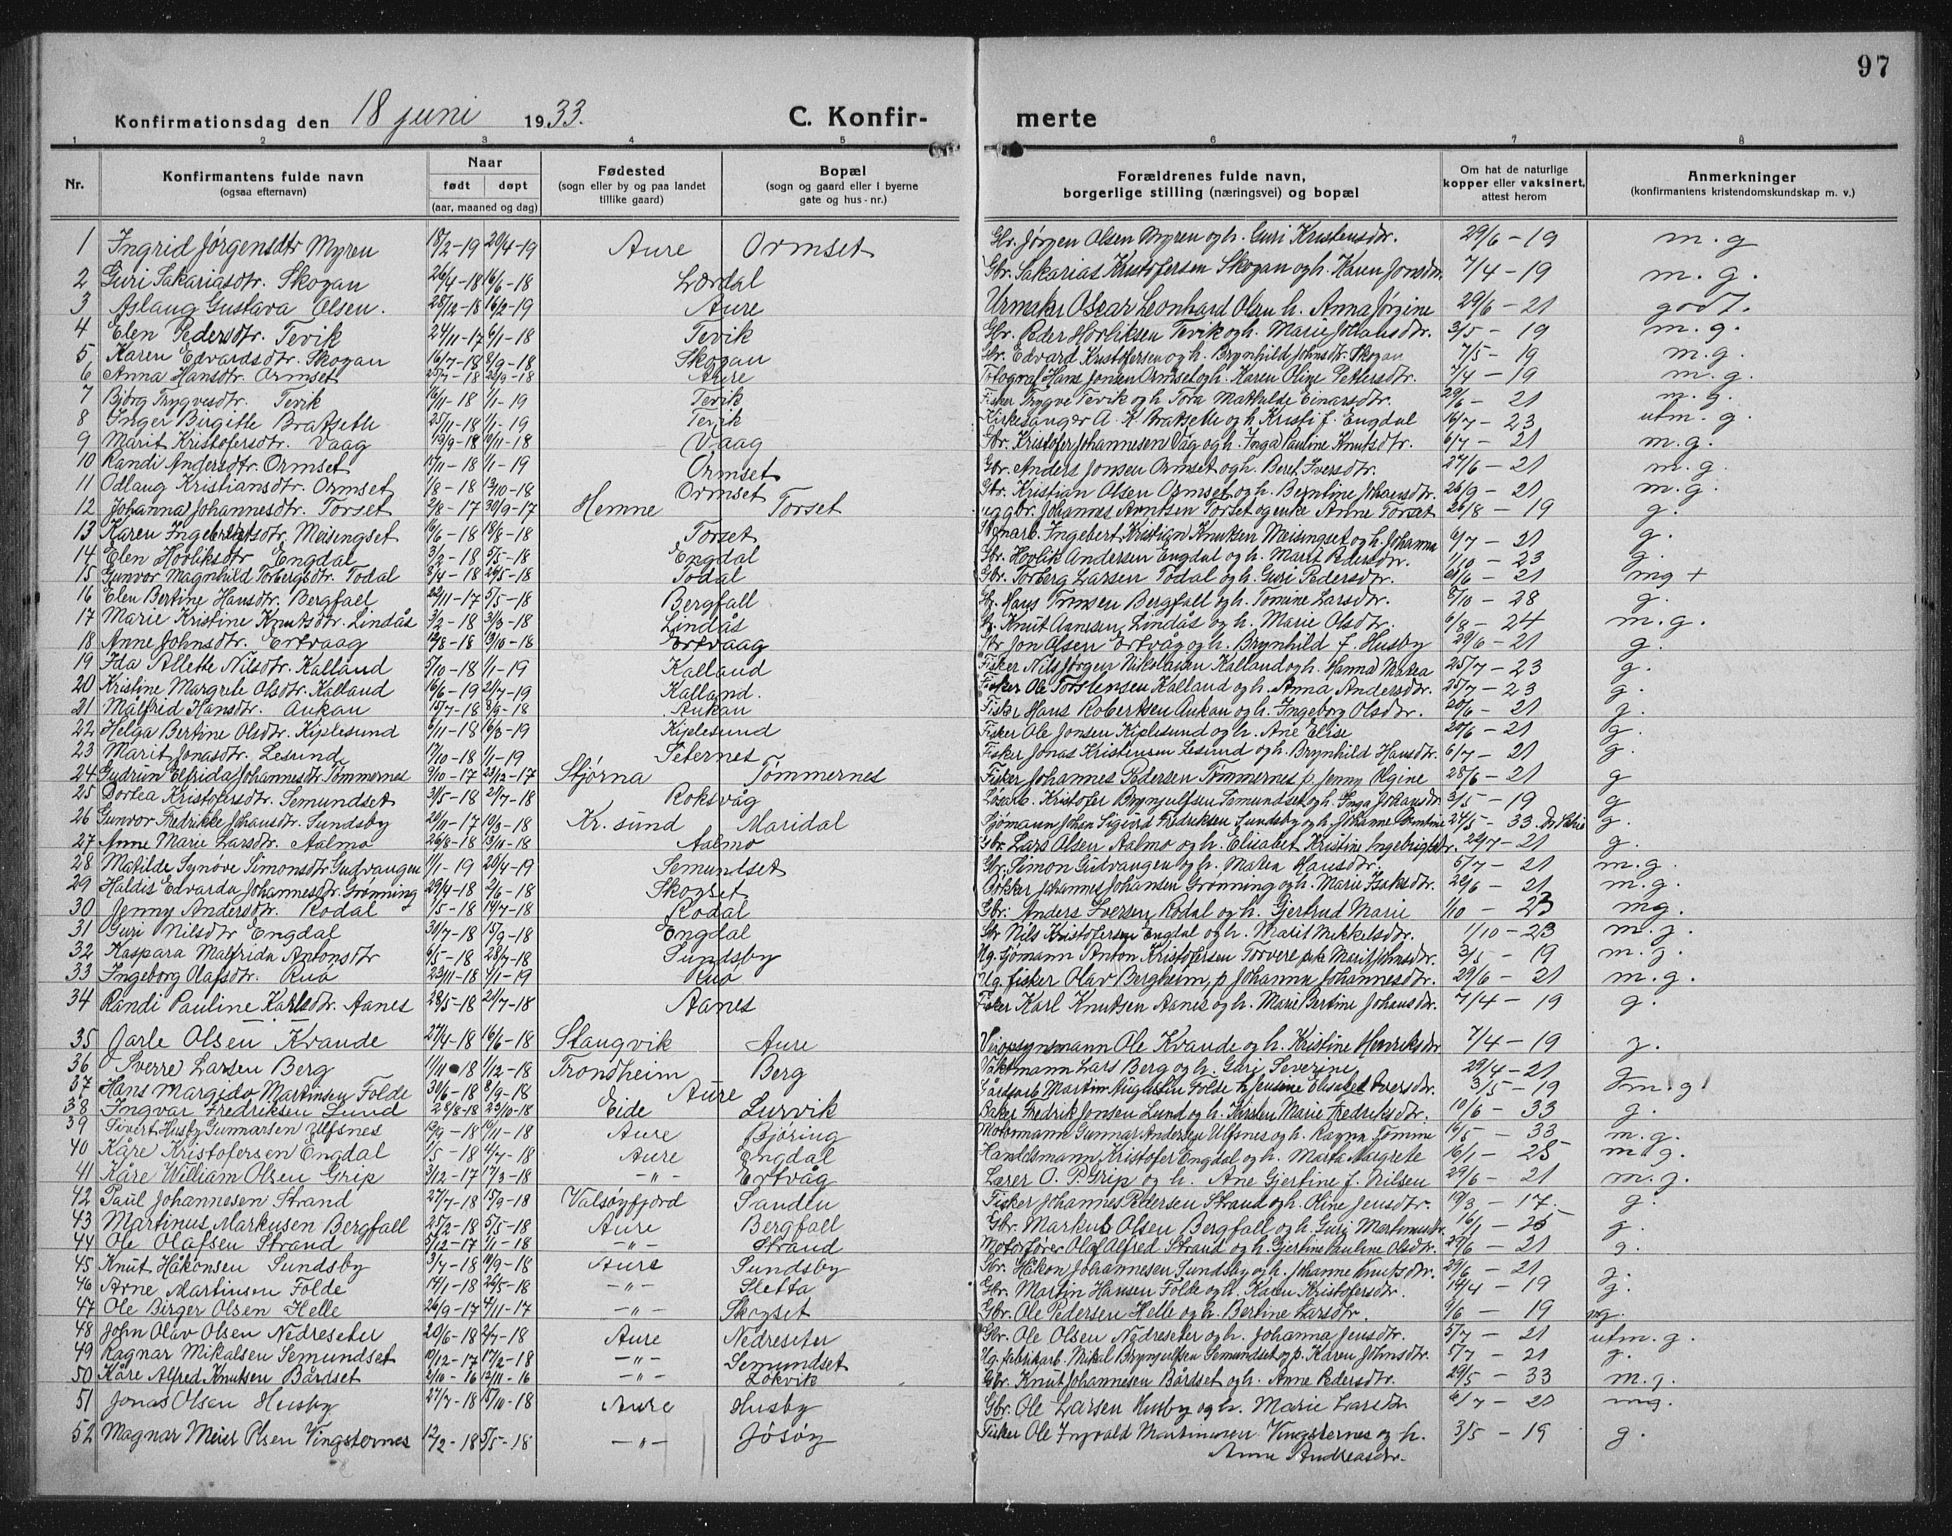 97
Konfirmationsdag den 18 juni 1933. C. Konfirmerte
1 2 3 4 5 6 7 8
Nr. Konfirmantens fulde navn (ogsaa efternavn) Naar født døpt (aar, maaned og dag) Fødested (sogn eller by og paa landet tillike gaard) Bopæl (sogn og gaard eller i byerne gate og hus-nr.) Forældrenes fulde navn, borgerlige stilling (næringsvei) og bopæl Om hat de naturlige kopper eller vaksinert, attest herom Anmerkninger (konfirmantens kristendomskundskap m. v.)
1 Ingrid Jørgensdtr Myren 18/2-19 20/4-19 Aure Ormset Gbr. Jørgen Olsen Myren og h. Guri Kristensdtr. 29/6 - 19 m.g
2 Guri Sakariasdtr. Skogan 26/4-18 16/6-18 Lærdal Gbr. Sakarias Kristofersen Skogan og h. Karen Jonsdtr 7/4 - 19 m.g.
3 Aslaug Gustava Olsen. 28/12-18 16/2-19 Aure Urmaker Oscar Leonhard Olsen h. Anna Jørgine 29/6 - 21 godt.
4 Elen Pedersdtr. Tevik 24/11-17 6/1-18 Tevik Gbr. Peder Hovliksen Tevik og h. Marie Johansdtr. 3/5 - 19 m.g.
5 Karen Edvardsdtr. Skogan 16/7-18 8/9-18 Skogan Gbr. Edvard Kristofersen og h. Brynhild Johnsdtr. Skogan 7/5 - 19 m.g.
6 Anna Hansdtr. Ormset 25/7-18 22/9-18 Aure Fotograf Hans Jonsen Ormset og h. Karen Oline Pettersdtr. 7/4 - 19 m.g.
7 Bjørg Trygvesdtr. Tevik 16/11-18 1/1-19 Tevik Fisker Trygve Tevik og h Tora Mathilde Einarsdtr. 29/6 - 21 m.g.
8 Inger Birgitte Bratseth 25/11-18 1/1-19 Tevik Kirkesanger A. K. Bratseth og h. Kristi f. Engdal 16/7 - 23 utm. g.
9 Marit Kristofersdtr. Vaag 19/9-18 10/11-18 Vaag Gbr. Kristofer Johannesen Våg og h. Inga Pauline Knutsdtr. 6/7 - 21 m.g.
10 Randi Andersdtr. Ormset 13/11-18 1/1-19 Ormset Gbr. Anders Jonsen Ormset og h. Beret Iversdtr. 27/6 - 21 m.g.
11 Odlaug Kristiansdtr. Ormset 1/8-18 13/10-18 Ormset Gbr. Kristian Olsen Ormset og h. Berntine Johansdtr. 26/9 - 21 m.g.
12 Johanna Johannesdtr. Torset 2/8-17 30/9-17 Hemne Torset gbr. Johannes Arntsen Torset og enke Anne Torset 26/8 - 19 g.
13 Karen Ingebretsdtr. Meisingset 16/6-18 18/8-18 Torset Ingebert Kristian Knutsen Meisingset og h. Johanna 6/7 - 21 g.
14 Elen Hovliksdtr Engdal 3/2-18 5/5-18 Engdal Gbr. Hovlik Andersen Engdal og h. Marit Pedersdtr. 1/10 - 23 g.
15 Gunvor Magnhild Torbergsdtr. Todal 8/4-18 26/5-18 Todal Gbr. Torberg Larsen Todal og h. Guri Pedersdtr. 21/6 - 21 mg +
16 Elen Bertine Hansdtr. Bergfall 22/11-17 5/5-18 Bergfall Hans Bergfall og h. Tomine Larsdtr. 5/10 - 28 g.
17 Marie Kristine Knutsdtr. Lindås 3/2-18 3/3-18 Lindås Knut Aanesen Lindås og h. Marie Olsdtr. 6/8 - 24 m.g.
18 Anne Johnsdtr. Ertvaag 12/8-18 13/10-18 Ertvaag Gbr Jon Olsen Ertvåg og h. Brynhild f. Husby 29/6 - 21 g.
19 Ida Allette Nilsdtr. Kalland 5/10-18 1/1-19 Kalland Fisker Nils Jørgen Nikolaisen Kalland og h. Hanna Matea 25/7 - 23 g.
20 Kristine Margrete Olsdtr. Kalland 16/6-19 27/7-19 Kalland. Fisker Ole Torstensen Kalland og h. Anna Andersdtr. 25/7 - 23 g.
21 Målfrid Hansdtr. Aukan 15/7-18 8/9-18 Aukan Fisker Hans Robertsen Aukan og h. Ingeborg Olsdtr. 20/6 - 21 g.
22 Helga Bertine Olsdtr. Kiplesund 6/11-18 16/3-19 Kiplesund Fisker Ole Jonsen Kiplesund og h. Ane Elise 20/6 - 21 g.
23 Marit Jonasdtr. Lesund 17/10-18 1/1-19 Seternes Fisker Jonas Kristensen Lesund og h. Brynhild Hansdtr. 6/7 - 21 g.
24 Gudrun Elfrida Johannesdtr. Tømmernes 9/10-17 23/12-17 Stjørna Tømmernes Fisker Johannes Pedersen Tømmernes p. Jenny Olgine 28/6 - 21 g
25 Dortea Kristofersdtr. Semundset 3/5-18 21/7-18 Roksvåg Løsarb. Kristofer Brynjulfsen Semundset og h. Inga Johansdtr. 3/5 - 19 g
26 Gunvor Fredrikke Johansdtr. Sundsby 20/11-17 10/3-18 Kr. sund Maridal Sjømann Johan Sigurd Fredriksen Sundsby og h. Johanne Berntine 24/5 - 33 g.
27 Anne Marie Larsdtr. Aalmo 26/8-18 13/10-18 Aalmo Gbr. Lars Olsen Aalmo og h. Elisabet Kristine Ingebrigtsdtr. 29/7 - 21 g.
28 Matilde Synøve Simonsdtr Gudvangen 1/1-19 20/4-19 Semundset Gbr. Simon Gudvangen og h. Matea Hansdtr. 6/7 - 21 m.g.
29 Haldis Edvarda Johannesdtr. Grønning 29/4-18 2/6-18 Skogset Johannes Johansen Grønning og h. Marie Isaksdtr. 22/6 - 21 m.g.
30 Jenny Andersdtr. Rodal 1/5-18 14/7-18 Rodal Gbr. Anders Iversen Rodal og h. Gjertrud Marie 1/10 - 23 mg.
31 Guri Nilsdtr Engdal 30/7-18 15/9-18 Engdal Gbr Nils Kristofersen Engdal og h. Marit Mikkelsdtr. 1/10 - 23 m.g.
32 Kaspara Malfrida Antonsdtr 6/5-18 28/7-18 Sundsby Ug. sjømann Anton Kristofersen Torvere Merit Johnsdtr. 3/5 - 19 m.g.
33 Ingeborg Olafsdtr. Rua 23/11-18 4/1-19 Rua Ug. fisker Olav Bergheim, p Johanna Johannesdtr. 29/6 - 21 m.g.
34 Randi Pauline Karlsdtr. Aanes 28/5-18 21/7-18 Aanes Fisker Karl Knutsen Aanes og h. Marie Bertine Johansdtr. 7/4 - 19 g.
35 Jarle Olsen Kvande 27/4-18 16/6-18 Stangvik Aure Veiopsynsmann Ole Kvande og h. Kristine Henriksdtr 7/4 - 19 g.
36 Sverre Larsen Berg 1/11-18 1/12-18 Trondheim Berg Vaktmann Lars Berg og h. Guri Severine 29/4 - 21
37 Hans Margido Martinsen Folde 30/6-18 8/9-18 Aure Gårdsarb Martin Folde h Jensine Elisabet Iversdtr. 3/5 - 19 m.g
38 Ingvar Fredriksen Lund 28/8-18 23/10-18 Eide Lurvik Baker Fredrik Jonsen Lund og h. Kirsten Marie Fredriksdtr. 10/6 - 33 g.
39 Sivert Husby Gunnarsen Ulfsnes 12/9-18 10/11-18 Aure Bjøring Motormann Gunnar Andersen Ulfsnes og h. Ragna Tømme 16/5 - 33 m.g.
40 Kåre Kristofersen Engdal 1/5-18 21/7-18 Aure Engdal Handelsmann Kristofer Engdal og h. Marta Margrete 16/1 - 25 m g.
41 Kåre William Olsen Grip 3/12-17 17/3-18 -"- Ertvåg Lærer O. P. Grip og h. Ane Gjertine f. Nilsen 29/6 - 21 m.g.
42 Paul Johannesen Strand 27/7-18 15/9-18 Valsøyfjord Sandlu Fisker Johannes Pettersen Strand og h. Oline Jensdtr. 19/3 - 17. g.
43 Martinus Markusen Bergfall 25/2-18 5/5-18 Aure Bergfall Gbr. Markus Olsen Bergfall og h. Guri Martinusdtr 16/1 - 25 g.
44 Ole Olafsen Strand 5/12-17 1/1-18 -"- Strand Motorfører Olaf Alfred Strand og h. Gjertine Pauline Olsdtr. 29/6 - 21 g.
45 Knut Håkonsen Sundsby 3/7-18 10/9-18 Aure Sundsby Gbr. Håkon Johannesen Sundsby og h. Johanne Knutsdtr. 29/6 - 21 g.
46 Arne Martinsen Folde 14/1-18 26/5-18 -"- Sletta Gbr. Martin Hansen Folde og h. Karen Kristofersdtr. 14/4 - 19 g.
47 Ole Birger Olsen Helle 26/9-17 4/11-17 -"- Skogset Gbr. Ole Pedersen Helle og h. Bertine Larsdtr. 6/6 - 19 mg.
48 John Olav Olsen Nedreseter 20/6-18 2/7-18 Aure Nedreseter Gbr. Ole Olsen Nedreseter og h. Johanna Jensdtr. 5/7 - 21 utm. g.
49 Ragnar Mikalsen Semundset 10/12-17 17/2-18 -"- Semundset Ug. fabrikarb. Mikal Brynjulfsen Semundset og p. Karen Johnsdtr. 5/7 - 21 g.
50 Kåre Alfred Knutsen Bårdset 2/10-16 12/11-16 -"- Lokvik Gbr. Knut Johannesen Bårdset og h. Anne Pedersdtr. 29/5 - 33 m.g.
51 Jonas Olsen Husby 27/7-18 13/10-18 Aure Husby Gbr. Ole Larsen Husby og h. Marie Larsdtr 6/7 - 21 mg.
52 Magnar Meier Olsen Vingsternes 12/2-18 5/5-18 -"- Jøsøy Fisker Ole Ingvald Martinusen Vingsternes og h. 3/5 - 19 g.
Anna Andreasdtr.